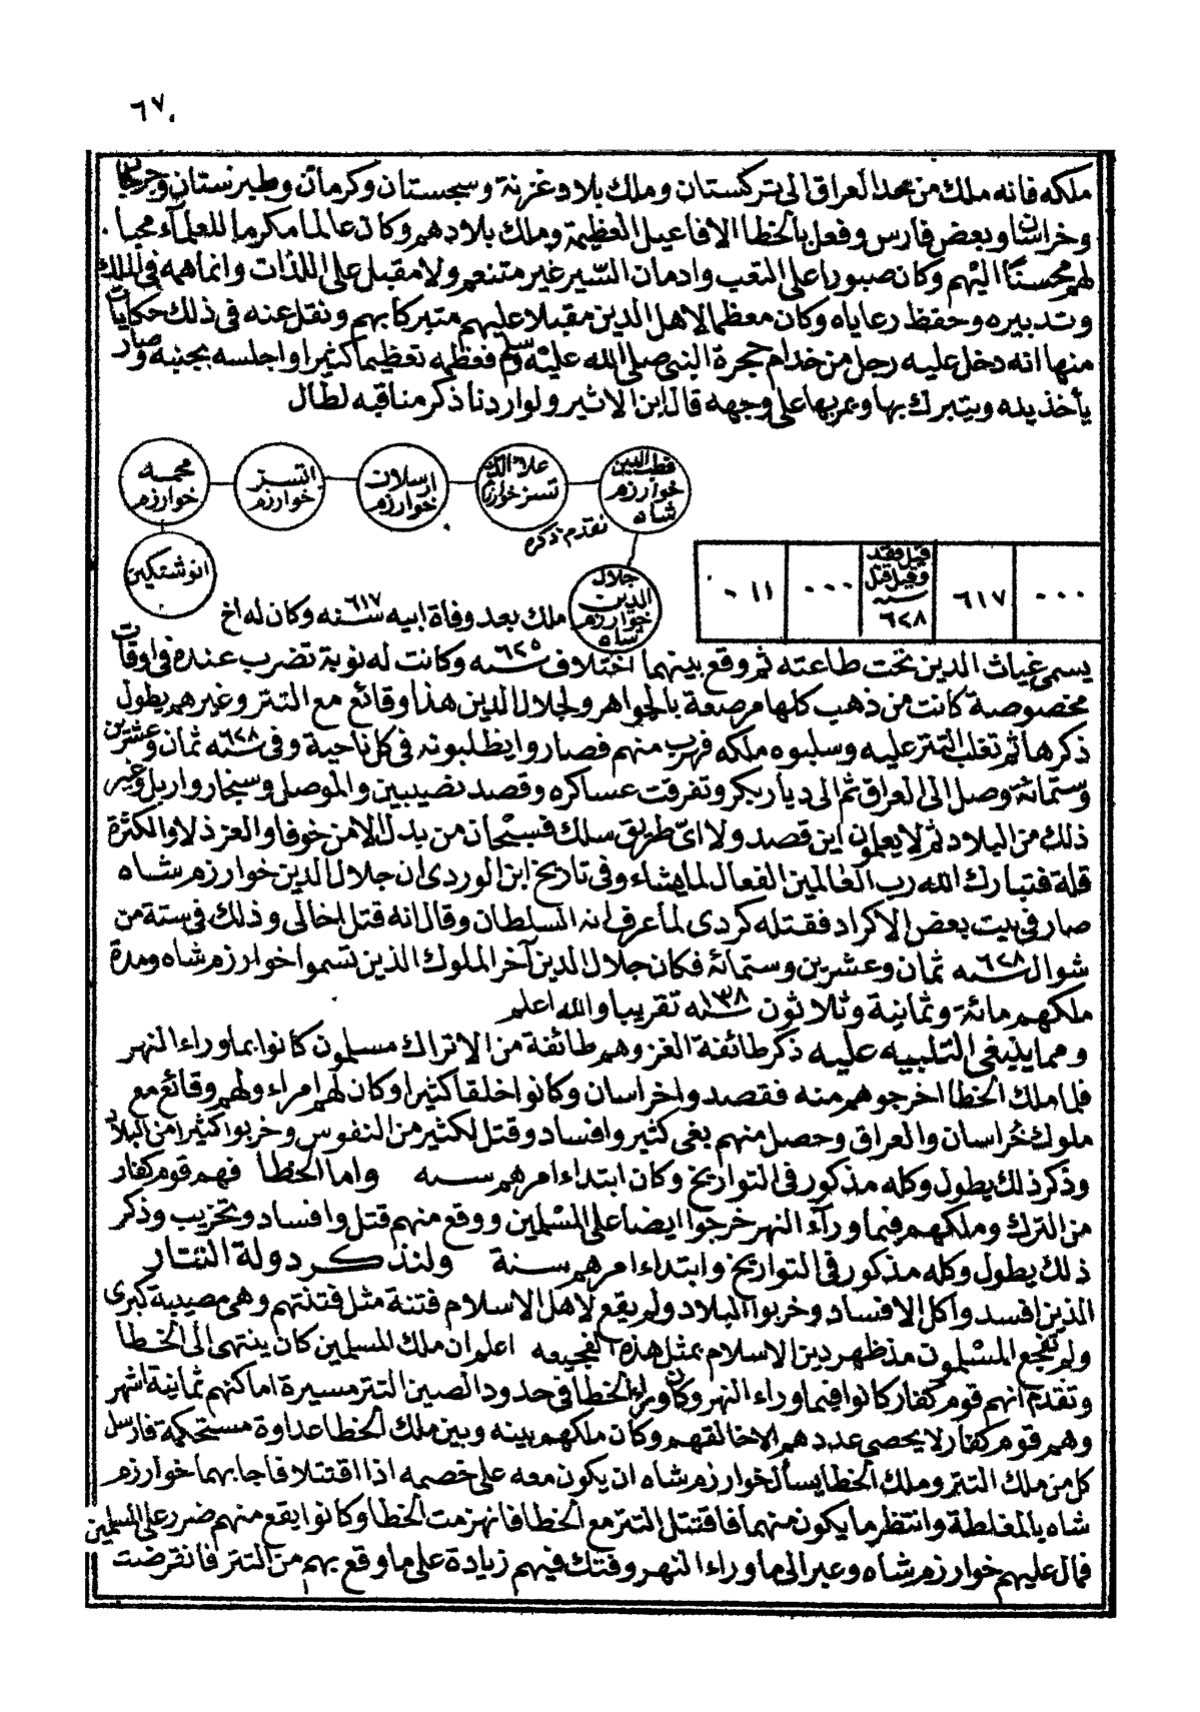 ٦٧.
ملكه فانه ملك من حد العراق الى تركستان وملك بلاد غزنة وسجستان وكرمان وطبرستان وجرجان
وخراسان وبعض فارس وفعل بالخطا الافاعيل العظيمة وملك بلادهم وكان عالما مكرما للعلماء محبا
لهم محسنا اليهم وكان صبورا على التعب وادمان السير غير متنعم ولا مقبل على اللذات وانما همه فى الملك
وتدبيره وحفظ رعاياه وكان معظما لاهل الدين مقبلا عليهم متبركا بهم ونقل عنه فى ذلك حكايات
منها انه دخل عليه رجل من خدام حجرة النبى صلى الله عليه وسلم فعظمه تعظيما كثيرا واجلسه بجنبه وصار
يأخذ يده ويتبرك بها ويمر بها على وجهه قال ابن الاثير ولو اردنا ذكر مناقبه لطال
قطب الدين خوارزم شاه
علاء الدين تسز خوارزم
ارسلان خوارزم
اتسز خوارزم
محمد خوارزم
انوشتكين
تقدم ذكره
٠٠٠
٦١٧
قيل فقد وقيل قتل سنه ٦٢٨
٠٠٠
٠١١
جلال الدين خوارزم شاه
ملك بعد وفاة ابيه سنه ٦١٧ وكان له اخ
يسمى غياث الدين تحت طاعته ثم وقع بينهما اختلاف سنه ٦٢٥ وكانت له نوبة تضرب عنده فى اوقات
مخصوصة كانت من ذهب كلها مرصعة بالجواهر ولجلال الدين هذا وقائع مع التتر وغيرهم يطول
ذكرها ثم تغلب التتر عليه وسلبوه ملكه فهرب منهم فصاروا يطلبونه فى كل ناحية وفى سنه ٦٢٨ ثمان وعشرين
وستمائة وصل الى العراق ثم الى ديار بكر وتفرقت عساكره وقصد نصيبين والموصل وسنجار واربل وغير
ذلك من البلاد ثم لا يعلمون اين قصد ولا اىّ طريق سلك فسبحان من يبدل الامن خوفا والعز ذلا والكثرة
قلة فتبارك الله رب العالمين الفعال لما يشاء وفى تاريخ ابن الوردى ان جلال الدين خوارزم شاه
صار فى بيت بعض الاكراد فقتله كردى لما عرف انه السلطان وقال انه قتل اخا لى وذلك فى ستة من
شوال سنه ٦٢٨ ثمان وعشرين وستمائة فكان جلال الدين آخر الملوك الذين تسموا خوارزم شاه ومدة
ملكهم مائة وثمانية وثلاثون ١٣٨ سنه تقريبا والله اعلم
ومما ينبغى التنبيه عليه ذكر طائفة الغز وهم طائفة من الاتراك مسلمون كانوا بما وراء النهر
فلما ملك الخطا اخرجوهم منه فقصدوا خراسان وكانوا خلقا كثيرا وكان لهم امراء ولهم وقائع مع
ملوك خراسان والعراق وحصل منهم بغى كثير وافساد وقتل لكثير من النفوس وخربوا كثيرا من البلاد
وذكر ذلك يطول وكله مذكور فى التواريخ وكان ابتداء امرهم سنه واما الخطا فهم قوم كفار
من الترك وملكهم فيما وراء النهر خرجوا ايضا على المسلمين ووقع منهم قتل وافساد وتخريب وذكر
ذلك يطول وكله مذكور فى التواريخ وابتداء امرهم سنة ولنذكر دولة التتار
الذين افسدوا كل الافساد وخربوا البلاد ولم يقع لاهل الاسلام فتنة مثل فتنتهم وهى مصيبة كبرى
ولم تفجع المسلمون مذ ظهر دين الاسلام بمثل هذه الفجيعه اعلم ان ملك المسلمين كان ينتهى الى الخطا
وتقدم انهم قوم كفار كانوا فيما وراء النهر وكان وراء الخطا فى حدود الصين التتر مسيرة اماكنهم ثمانية اشهر
وهم قوم كفار لا يحصى عددهم الا خالقهم وكان ملكهم بينه وبين ملك الخطا عداوة مستحكمة فارسل
كل من ملك التتر وملك الخطا يسأل خوارزم شاه ان يكون معه على خصمه اذا اقتتلا فاجابهما خوارزم
شاه بالمغلطة وانتظر ما يكون منهما فاقتتل التتر مع الخطا فانهزمت الخطا وكانوا يقع منهم ضرر على المسلمين
فمال عليهم خوارزم شاه وعبر الى ما وراء النهر وفتك فيهم زيادة على ما وقع بهم من التتر فانقرضت